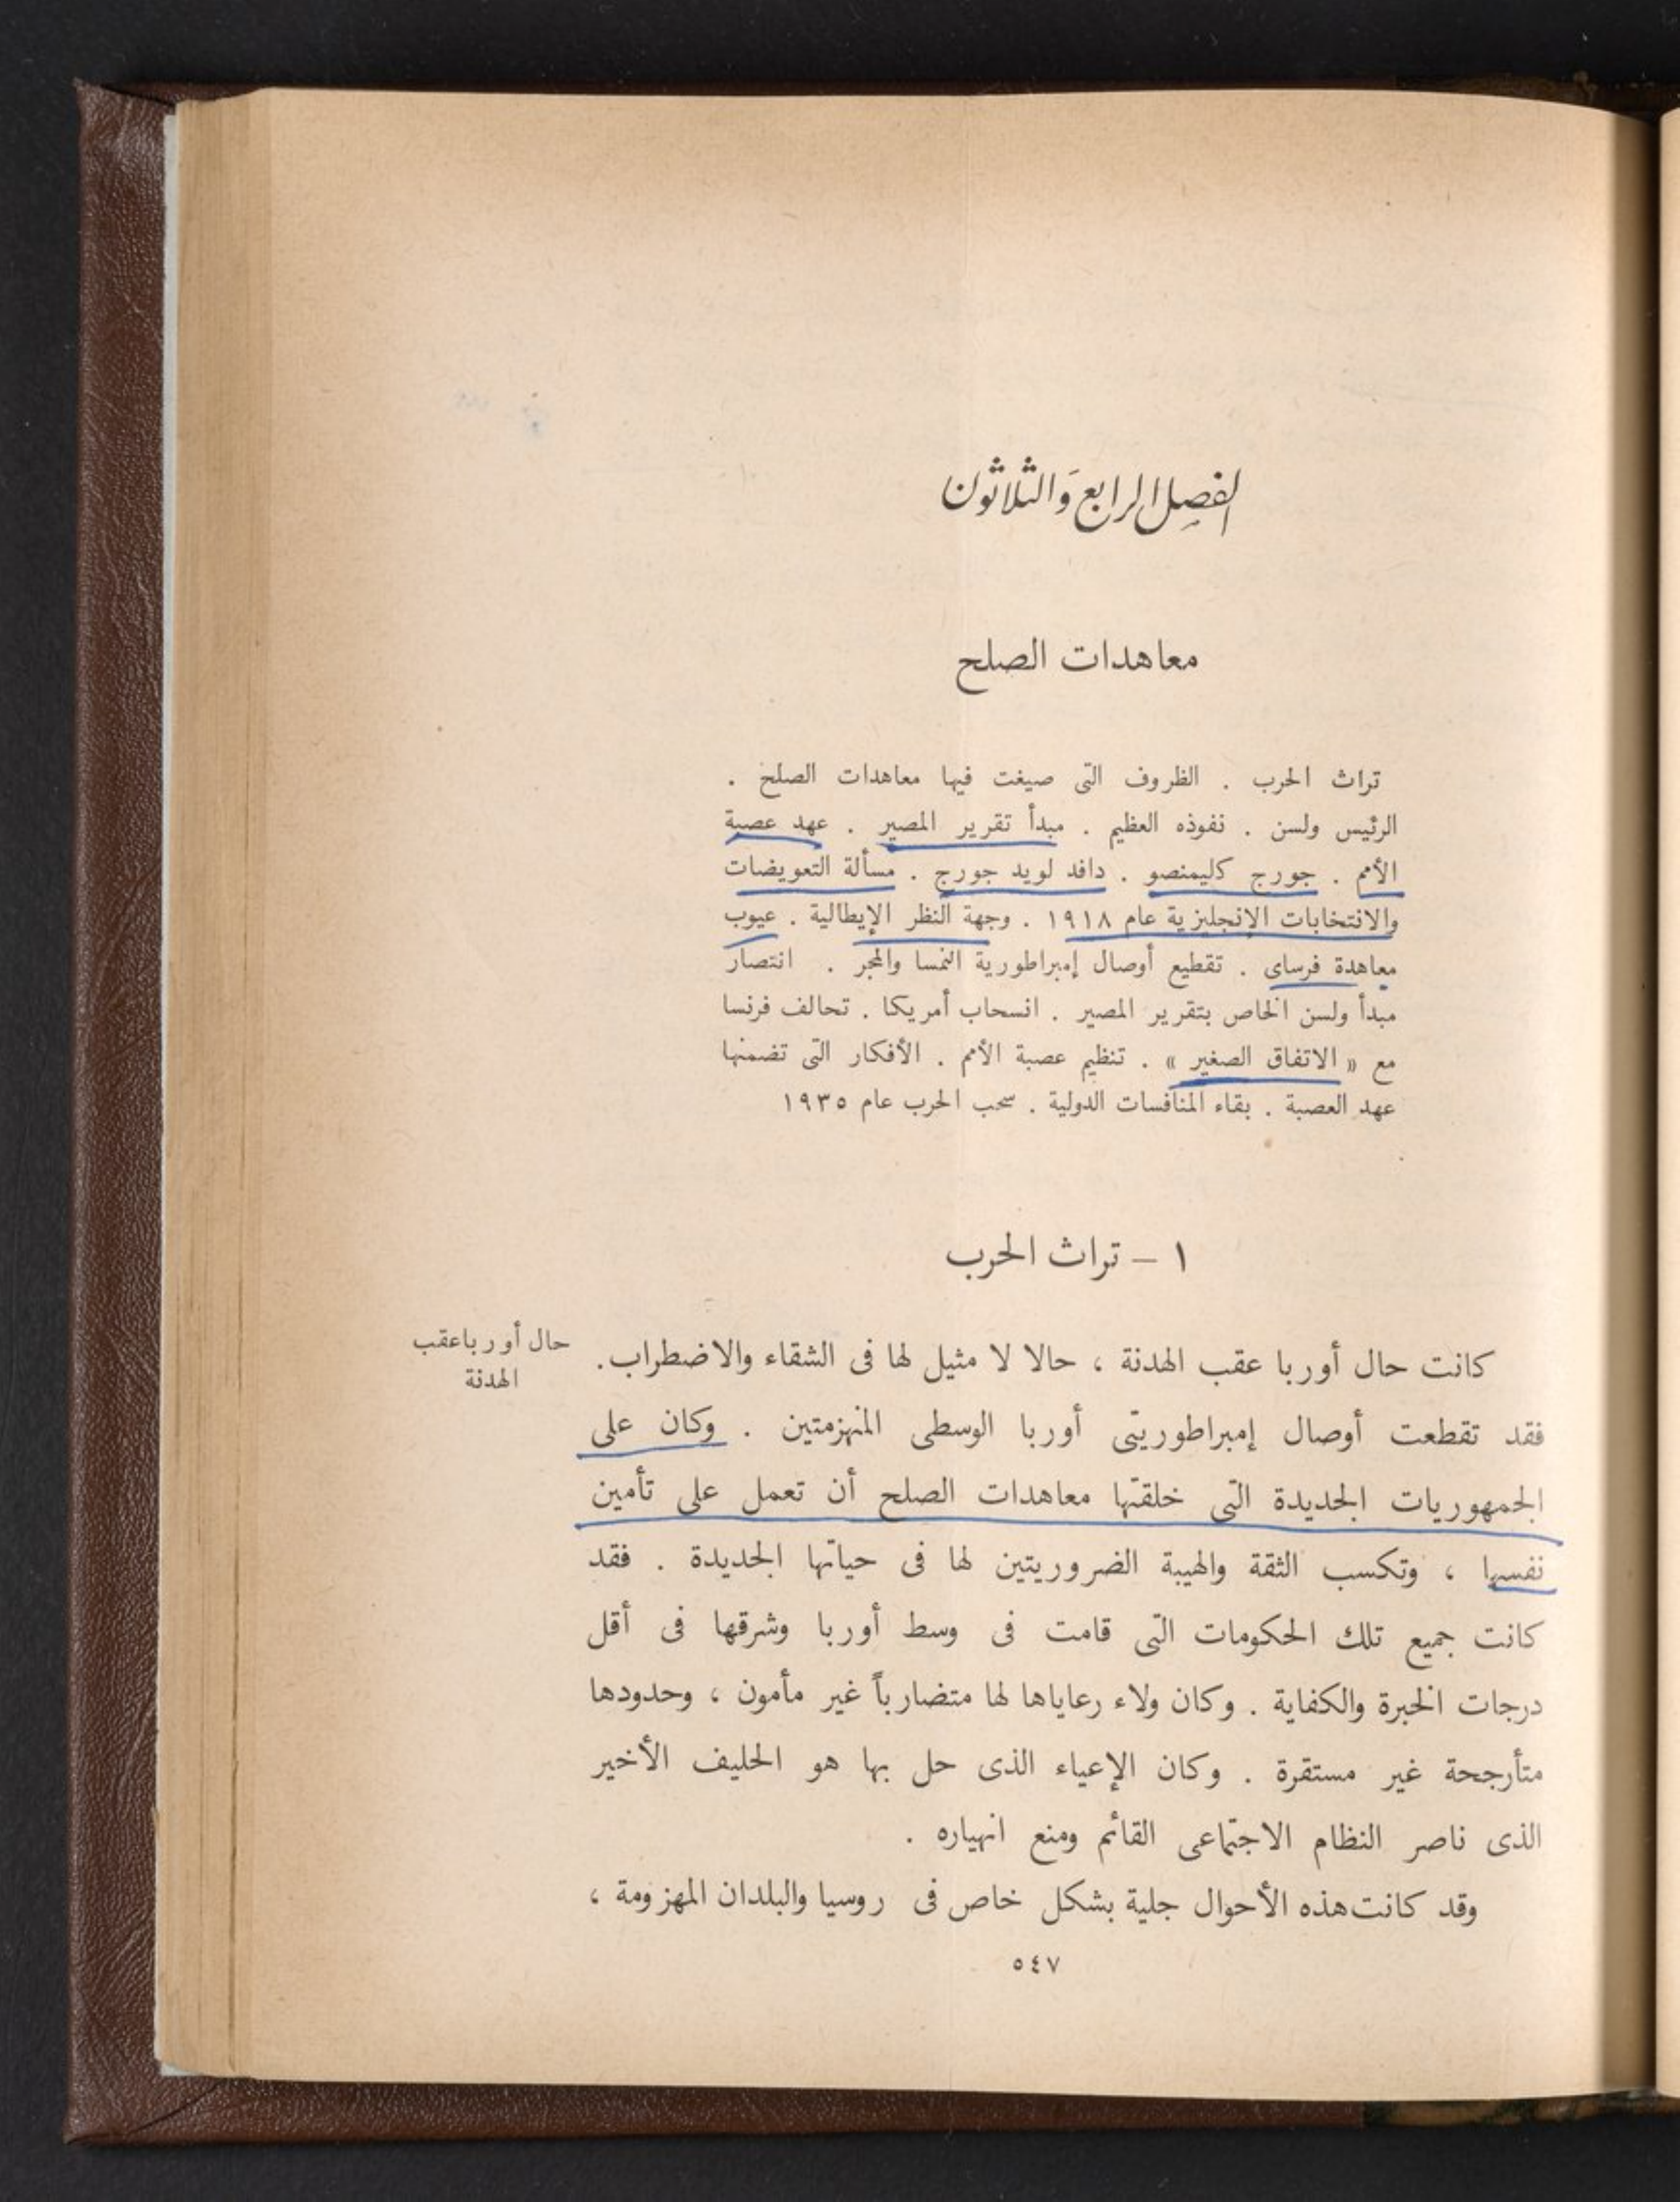 الفصل الرابع وَالثلاثون
معاهدات الصلح
تراث الحرب . الظروف التى صيغت فيها معاهدات الصلح .
الرئيس ولسن . نفوذه العظيم . مبدأ تقرير المصير . عهد عصبة
الأمم . جورج كليمنصو . دافد لويد جورج . مسألة التعويضات
والانتخابات الإنجليزية عام ١٩١٨ . وجهة النظر الإيطالية . عيوب
معاهدة فرساى . تقطيع أوصال إمبراطورية النمسا والمجر . انتصار
مبدأ ولسن الخاص بتقرير المصير . انسحاب أمريكا . تحالف فرنسا
مع « الاتفاق الصغير » . تنظيم عصبة الأمم . الأفكار التى تضمنها
عهد العصبة . بقاء المنافسات الدولية . سحب الحرب عام ١٩٣٥
١ – تراث الحرب
حال أورباعقب
الهدنة
كانت حال أوربا عقب الهدنة ، حالا لا مثيل لها فى الشقاء والاضطراب .
فقد تقطعت أوصال إمبراطوريتى أوربا الوسطى المنهزمتين . وكان على
الجمهوريات الجديدة التى خلقتها معاهدات الصلح أن تعمل على تأمين
نفسها ، وتكسب الثقة والهيبة الضروريتين لها فى حياتها الجديدة . فقد
كانت جميع تلك الحكومات التى قامت فى وسط أوربا وشرقها فى أقل
درجات الخبرة والكفاية . وكان ولاء رعاياها لها متضارباً غير مأمون ، وحدودها
متأرجحة غير مستقرة . وكان الإعياء الذى حل بها هو الحليف الأخير
الذى ناصر النظام الاجتماعى القائم ومنع انهياره .
وقد كانت هذه الأحوال جلية بشكل خاص فى روسيا والبلدان المهزومة ،
٥٤٧